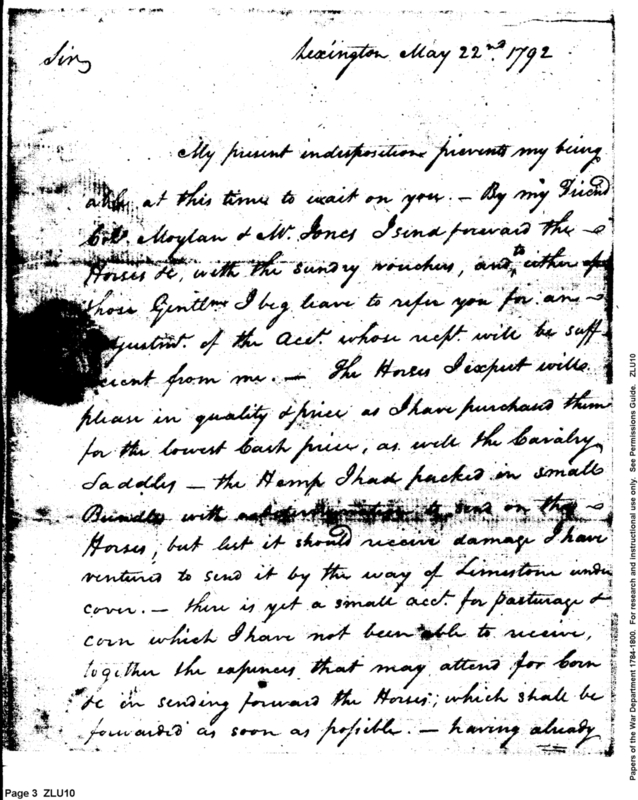 Sir,
Lexington May 22nd. 1792
My present indisposition prevents my being
able at this time to wait on you. – By my Friend
Colo. Moylan & Mr. Jones I send forward the
Horses &c, with the sundry vouchers, and to either of
those Gentlmn I beg leave to refer you for an
adjustmt. of the Acct. whose rect. will be suff-
icient from me. – The Horses I expect will
please in quality & price as I have purchased them
for the lowest Cash price, as well the Cavalry
Saddles – the Hemp I had packed in small
Bundles with a to send on the
Horses, but lest it should receive damage I have
ventured to send it by the way of Limestone under
cover. – there is yet a small acct. for pasturage &
corn which I have not been able to receive,
together the expences that may attend for Corn
&c in sending forward the Horses; which shall be
forwarded as soon as possible. – having already
Page 3 ZLU10
Papers of the War Department 1784-1800. For research and instructional use only. See Permissions Guide. ZLU10